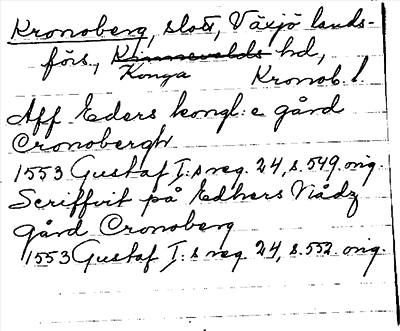 Kronoberg, slott, Växjö lands-
förs., Kinnevalds hd,
Konga Kronob. l.
Aff Eders kongl:e gård
Cronobergh
1553 Gustaf I:s reg. 24, s. 549. orig.
Scriffvit på Edhers Nådz
gård Cronoberg
1553 Gustaf I:s reg. 24, s. 552. orig.